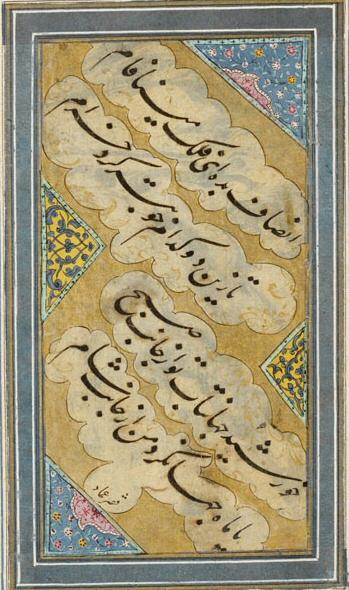 انصاف بده ای فلک مینا فام
تا زین دو کدام خوبتر کرد خرام
خورشید جهانتاب تو از جانب صبح
یا ماه جهانگرد من از جانب شام
فقیر عماد